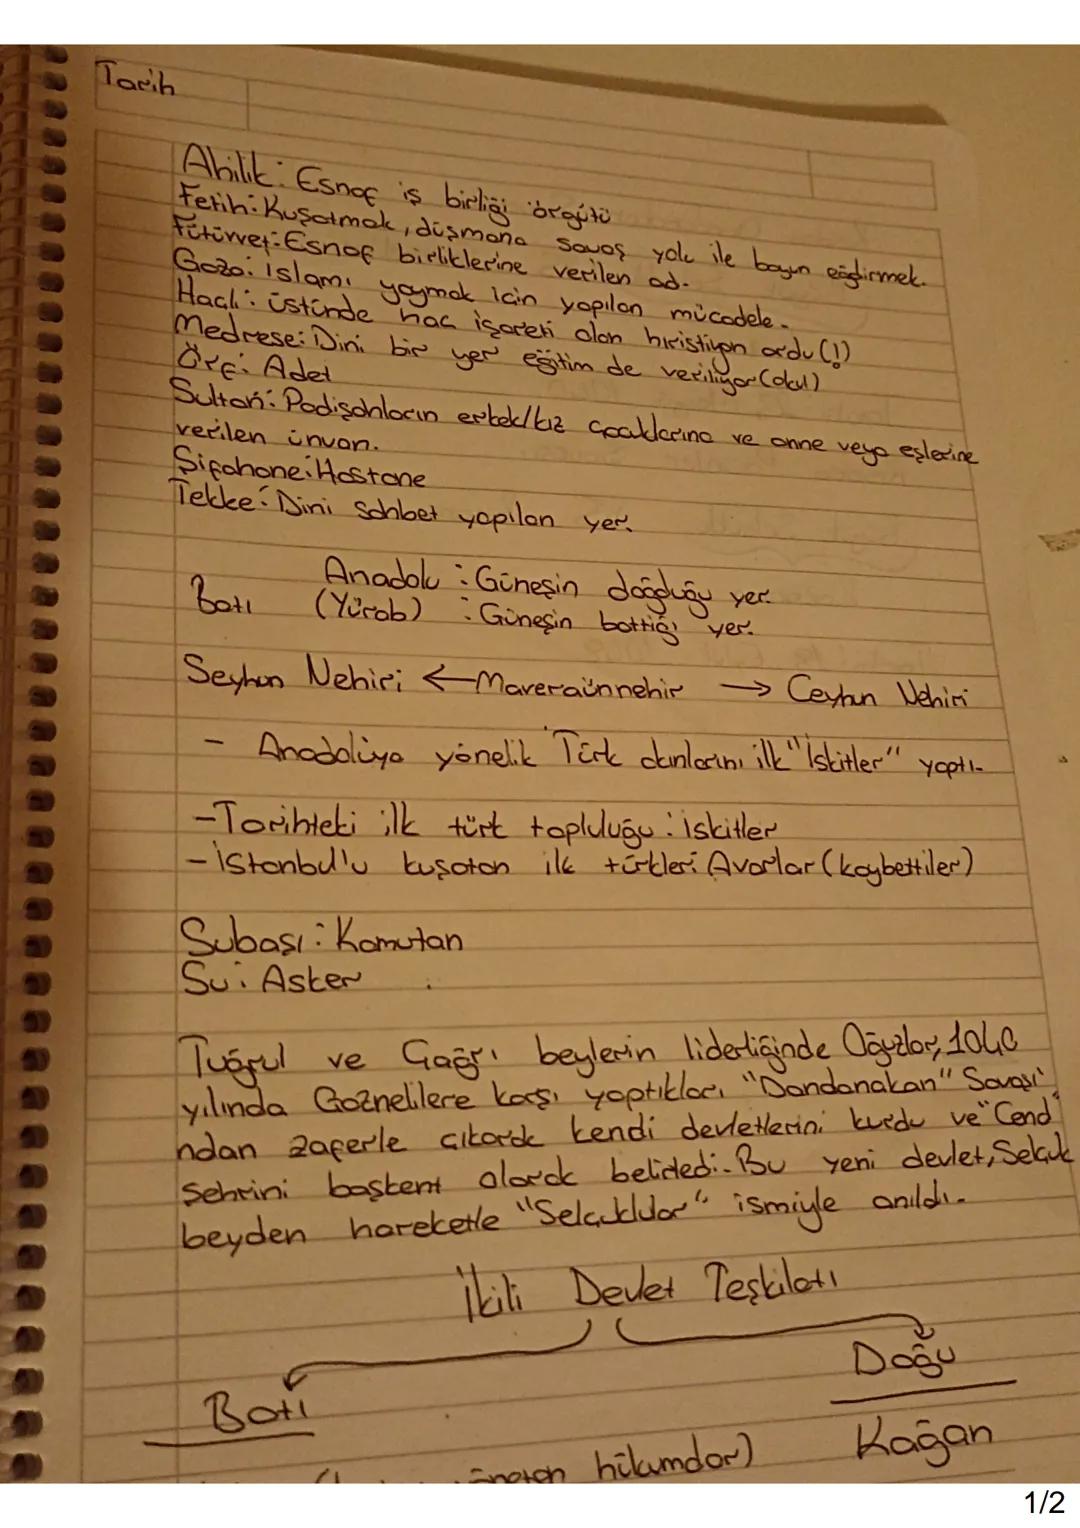 Tarih
Ahilik: Esnaf iş birliği örgütü
Fetih: Kuşatmak, düşmana savaş yolu ile boyun eğdirmek.
Fütüvvet: Esnaf birliklerine verilen ad.
Gaza: İslamı yaymak için yapılan mücadele.
Haçlı: üstünde haç işareti olan hıristiyan ordu (!)
Medrese: Dini bir yer eğitim de veriliyor (okul)
Örf: Adet
Sultan: Padişahların erkek/kız çocuklarına ve anne veya eşlerine
verilen ünvan.
Şifahane: Hastane
Tekke: Dini sohbet yapılan yer.
Anadolu : Güneşin doğduğu yer.
Batı (Yürab) : Güneşin battığı yer.
Seyhun Nehiri ← Maveraünnehir → Ceyhun Nehiri
- Anadoluya yönelik Türk akınlarını ilk "İskitler" yaptı.
- Tarihteki ilk türk topluluğu : iskitler
- istanbul'u kuşatan ilk türkler: Avarlar (kaybettiler)
Subaşı : Komutan
Su : Asker
Tuğrul ve Çağrı beylerin liderliğinde Oğuzlar, 1040
yılında Gaznelilere karşı yaptıkları "Dandanakan" Savaşı'
ndan zaferle çıkarak kendi devletlerini kurdu ve "Cend"
şehrini başkent olarak belirledi. Bu yeni devlet, Selçuk
beyden hareketle "Selçuklular" ismiyle anıldı.
İkili Devlet Teşkilatı
Batı Doğu
hükümdar) Kağan
1/2